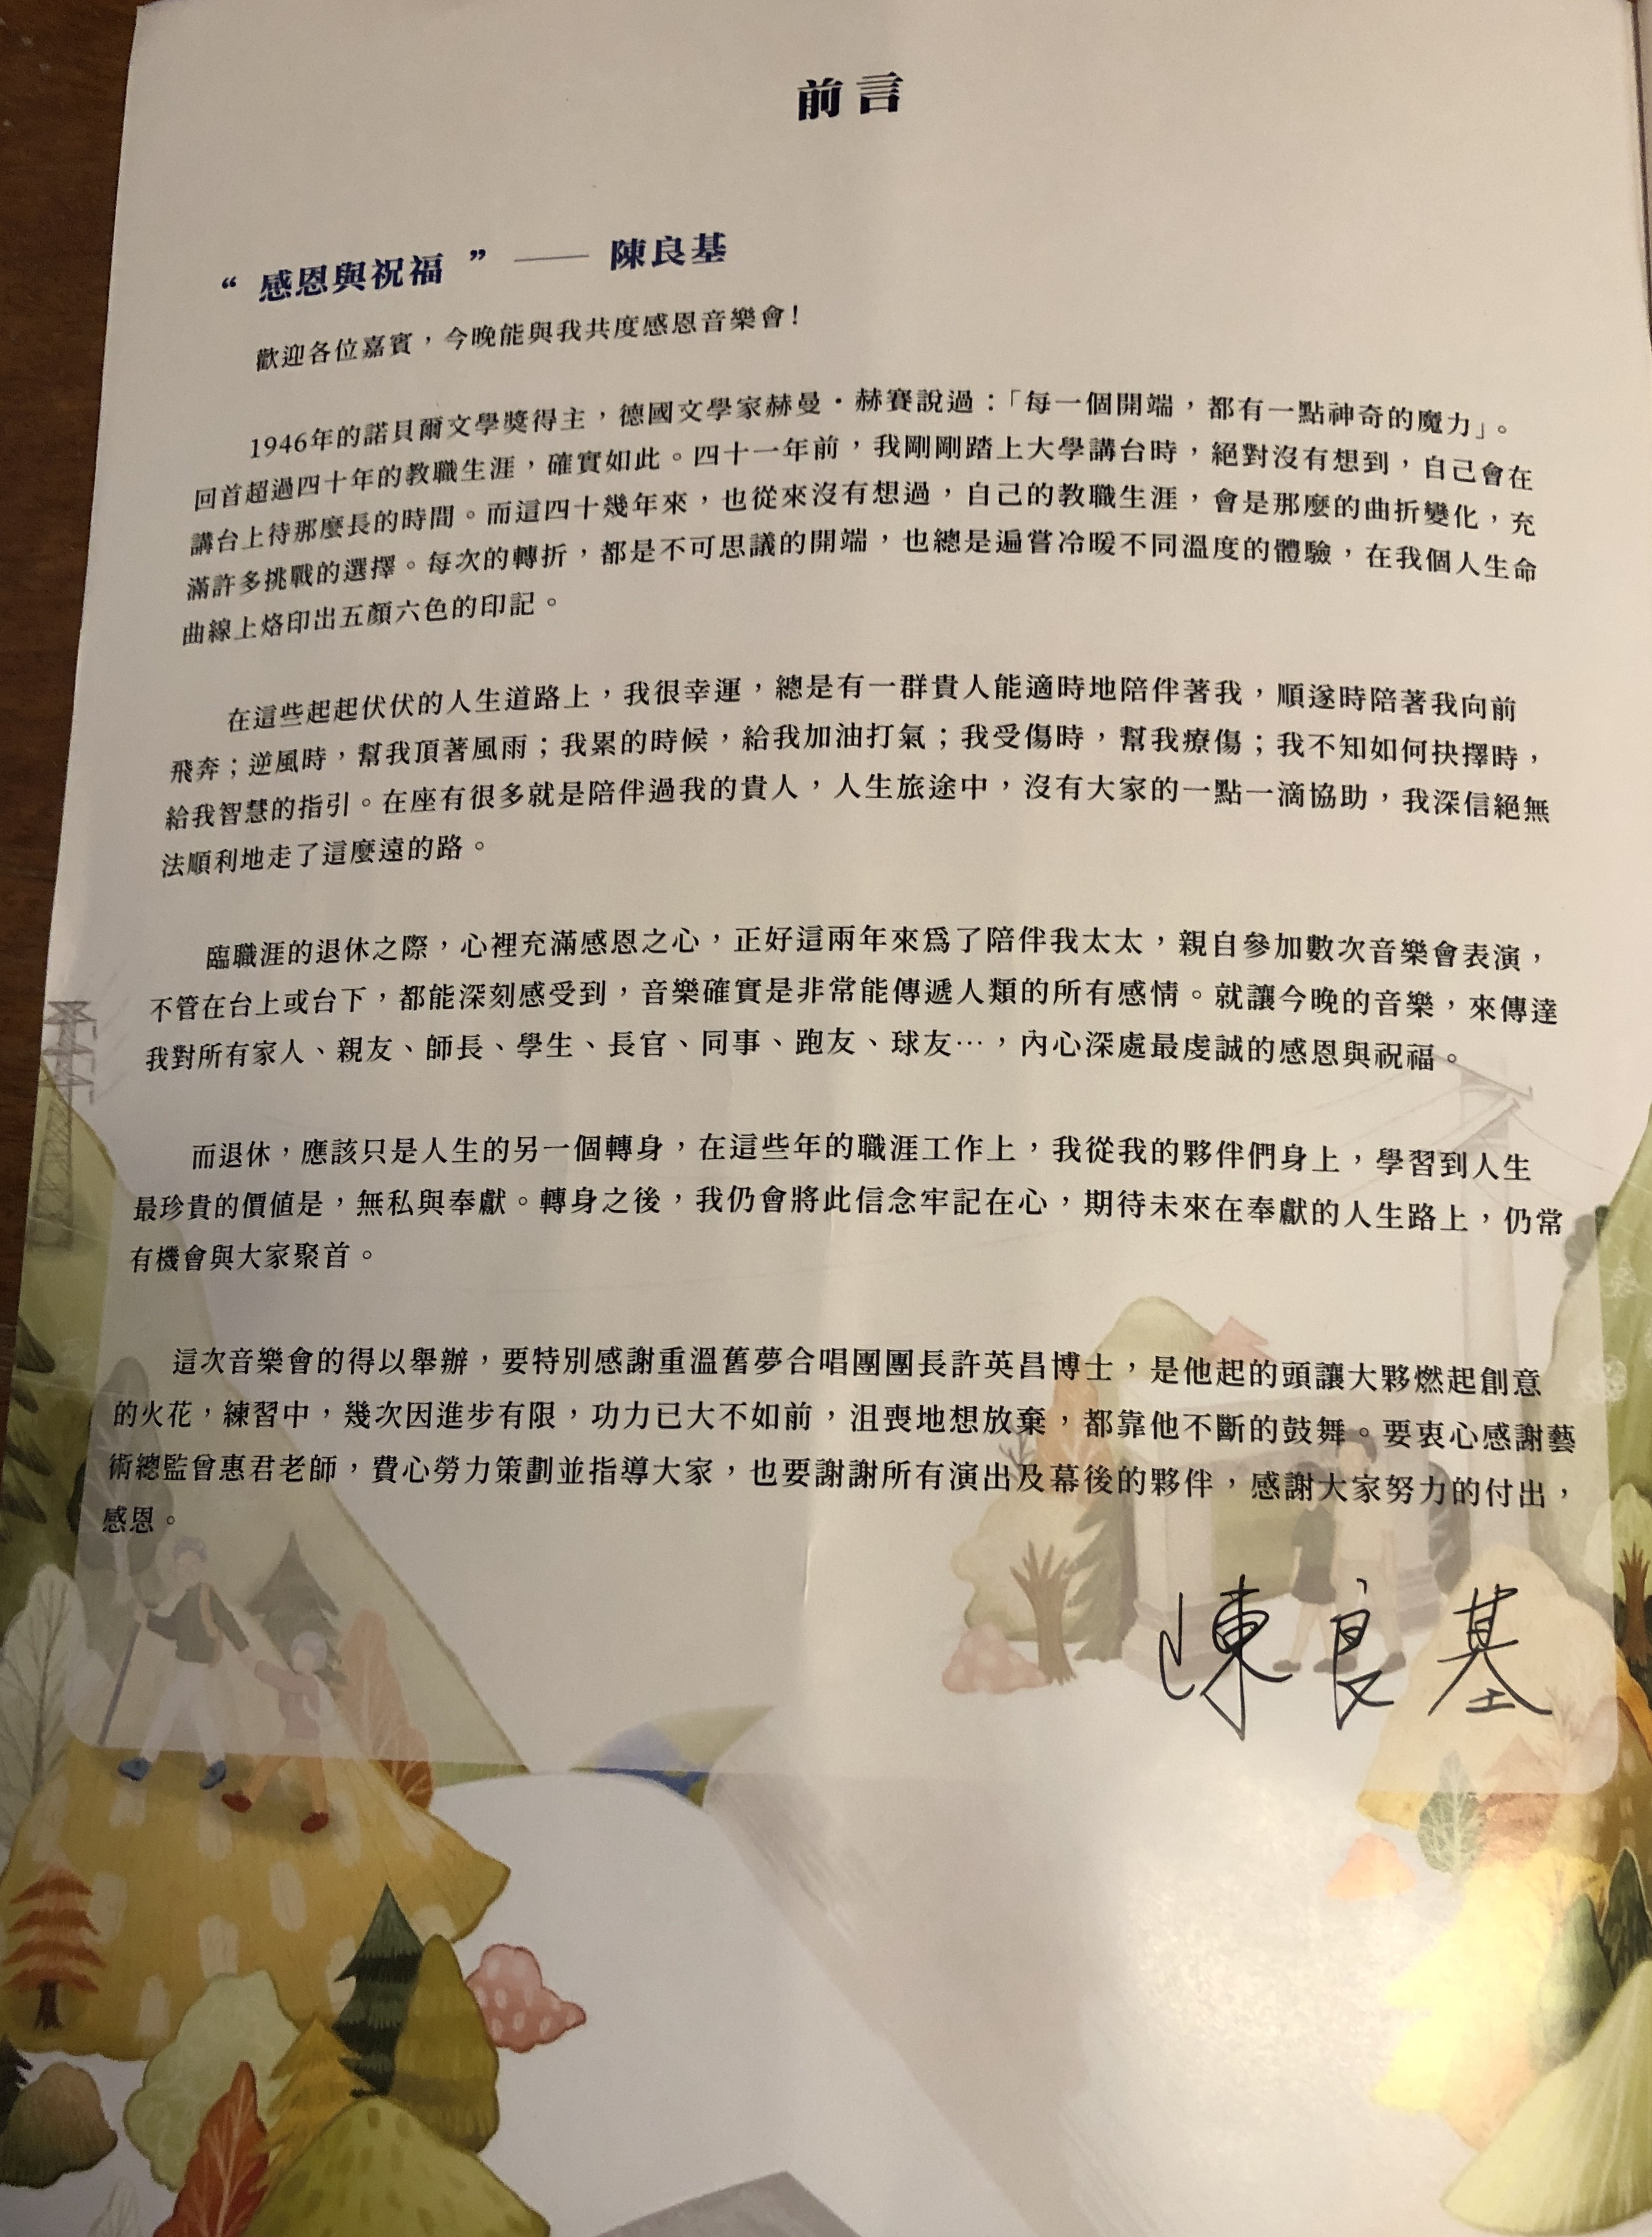 前言
“ 感恩與祝福 ” —— 陳良基
歡迎各位嘉賓，今晚能與我共度感恩音樂會！
1946年的諾貝爾文學獎得主，德國文學家赫曼・赫賽說過：「每一個開端，都有一點神奇的魔力」。
回首超過四十年的教職生涯，確實如此。四十一年前，我剛剛踏上大學講台時，絕對沒有想到，自己會在
講台上待那麼長的時間。而這四十幾年來，也從來沒有想過，自己的教職生涯，會是那麼的曲折變化，充
滿許多挑戰的選擇。每次的轉折，都是不可思議的開端，也總是遍嘗冷暖不同溫度的體驗，在我個人生命
曲線上烙印出五顏六色的印記。
在這些起起伏伏的人生道路上，我很幸運，總是有一群貴人能適時地陪伴著我，順遂時陪著我向前
飛奔；逆風時，幫我頂著風雨；我累的時候，給我加油打氣；我受傷時，幫我療傷；我不知如何抉擇時，
給我智慧的指引。在座有很多就是陪伴過我的貴人，人生旅途中，沒有大家的一點一滴協助，我深信絕無
法順利地走了這麼遠的路。
臨職涯的退休之際，心裡充滿感恩之心，正好這兩年來為了陪伴我太太，親自參加數次音樂會表演，
不管在台上或台下，都能深刻感受到，音樂確實是非常能傳遞人類的所有感情。就讓今晚的音樂，來傳達
我對所有家人、親友、師長、學生、長官、同事、跑友、球友…，內心深處最虔誠的感恩與祝福。
而退休，應該只是人生的另一個轉身，在這些年的職涯工作上，我從我的夥伴們身上，學習到人生
最珍貴的價值是，無私與奉獻。轉身之後，我仍會將此信念牢記在心，期待未來在奉獻的人生路上，仍常
有機會與大家聚首。
這次音樂會的得以舉辦，要特別感謝重溫舊夢合唱團團長許英昌博士，是他起的頭讓大夥燃起創意
的火花，練習中，幾次因進步有限，功力已大不如前，沮喪地想放棄，都靠他不斷的鼓舞。要衷心感謝藝
術總監曾惠君老師，費心勞力策劃並指導大家，也要謝謝所有演出及幕後的夥伴，感謝大家努力的付出，
感恩。
陳良基